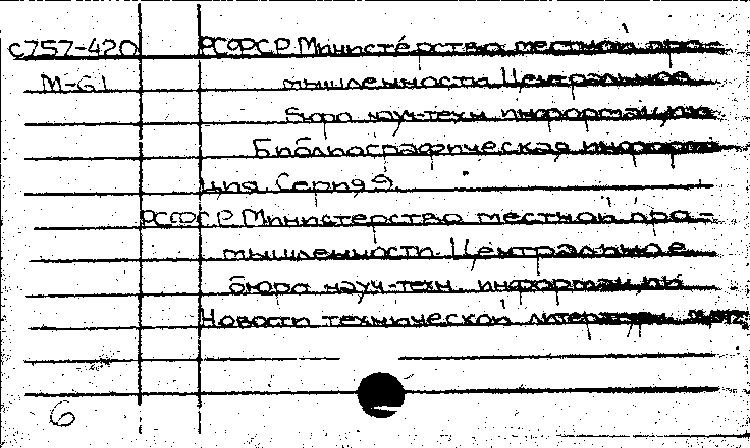 С757-420 РСФСР. Министерство местной про-
М-61 мышленности. Центральное
бюро науч-техн информации
Библиографическая информа
ция. Серия 9.
РСФСР. Министерство местной про-
мышленности Центральное
бюро науч-техн. информации
Новости технической литературы
6